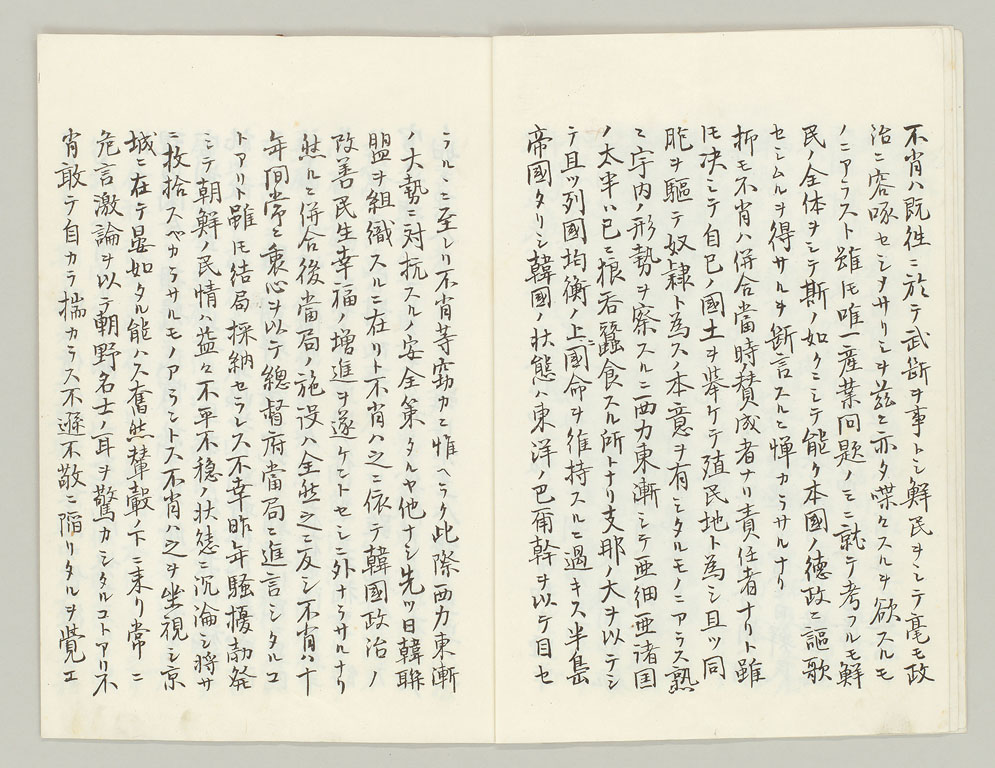 不肖ハ既徃ニ於テ武斷ヲ事トシ鮮民ヲシテ毫モ政
治ニ容喙セシメサリシヲ兹ニ亦タ喋々スルヲ欲スルモ
ノニアラスト雖モ唯一産業問題ノミニ就テ考フルモ鮮
民ノ全体ヲシテ斯ノ如クニシテ能ク本國ノ徳政ニ謳歌
セシムルヲ得サルヲ斷言スルニ憚カラサルナリ
抑モ不肖ハ併合當時ノ賛成者ナリ責任者ナリト雖
モ决シテ自巳ノ國土ヲ挙ケテ殖民地ト為シ且ツ同
胞ヲ驅テ奴隷ト為スノ本意ヲ有シタルモノニアラス熟
々宇内ノ形勢ヲ察スルニ西力東漸シテ亜細亜諸国
ノ太半ハ已ニ狼呑蠶食スル所トナリ支那ノ大ヲ以テシ
テ且ツ列國均衡ノ上ニ國命ヲ維持スルニ過キス半島
帝國タリシ韓國ノ状態ハ東洋ノ巴爾幹ヲ以テ目セ
ラルヽニ至レリ不肖等竊カニ惟ヘラク此際西力東漸
ノ大勢ニ対抗スルノ安全策タルヤ他ナシ先ツ日韓聯
盟ヲ組織スルニ在リト不肖ハ之ニ依テ韓國政治ノ
改善民生幸福ノ増進ヲ遂ケントセシニ外ナラサルナリ
然ルニ併合後當局ノ施設ハ全然之ニ反シ不肖ハ十
年間常ニ衷心ヲ以テ總督府當局ニ進言シタルコ
トアリト雖モ結局採納セラレス不幸昨年騒擾勃発
シテ朝鮮ノ民情ハ益々不平不穏ノ状態ニ沉淪シ将サ
ニ收拾スベカラサルモノアラントス不肖ハ之ヲ坐視シ京
城ニ在テ晏如タル能ハス奮然輦轂ノ下ニ来リ常ニ
危言激論ヲ以テ朝野名士ノ耳ヲ驚カシタルコトアリ不
肖敢テ自カラ揣カラス不遜不敬ニ陥リタルヲ覺エ